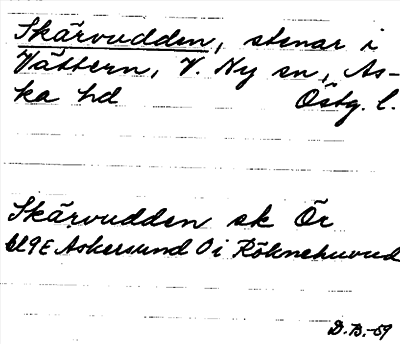 Skärvudden, stenar i
Vättern, V. Ny sn, As-
ka hd Östg. l.
Skärvudden ek Ör
bl 9E Askersund Ö i Röknehuvud
D.B.-69